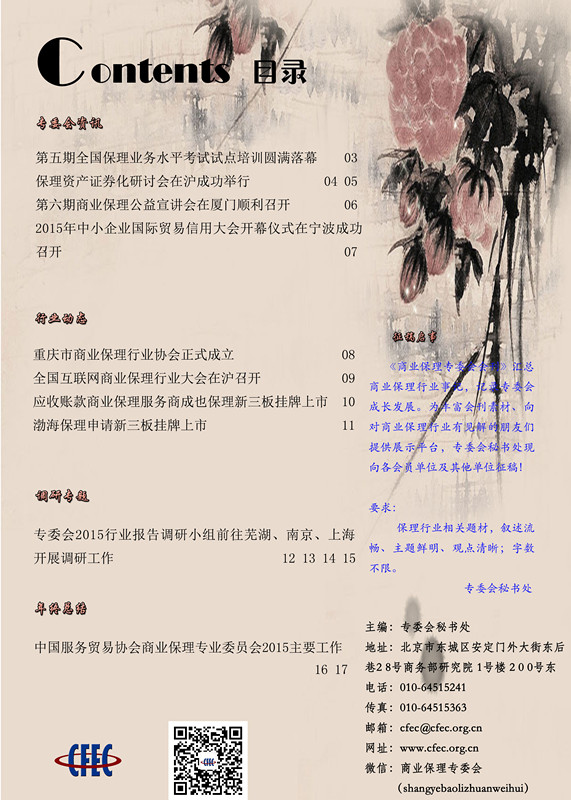 Contents 目录
专委会资讯
第五期全国保理业务水平考试试点培训圆满落幕 03
保理资产证券化研讨会在沪成功举行 04 05
第六期商业保理公益宣讲会在厦门顺利召开 06
2015年中小企业国际贸易信用大会开幕仪式在宁波成功
召开 07
行业动态
重庆市商业保理行业协会正式成立 08
全国互联网商业保理行业大会在沪召开 09
应收账款商业保理服务商成也保理新三板挂牌上市 10
渤海保理申请新三板挂牌上市 11
调研专题
专委会2015行业报告调研小组前往芜湖、南京、上海
开展调研工作 12 13 14 15
年终总结
中国服务贸易协会商业保理专业委员会2015主要工作
16 17
CFEC
征稿启事
《商业保理专委会会刊》汇总
商业保理行业事记，记录专委会
成长发展。为丰富会刊素材、向
对商业保理行业有见解的朋友们
提供展示平台，专委会秘书处现
向各会员单位及其他单位征稿！
要求：
保理行业相关题材，叙述流
畅、主题鲜明、观点清晰；字数
不限。
专委会秘书处
主编：专委会秘书处
地址：北京市东城区安定门外大街东后
巷28号商务部研究院1号楼200号东
电话：010-64515241
传真：010-64515363
邮箱：cfec@cfec.org.cn
网址：www.cfec.org.cn
微信：商业保理专委会
（shangyebaolizhuanweihui）